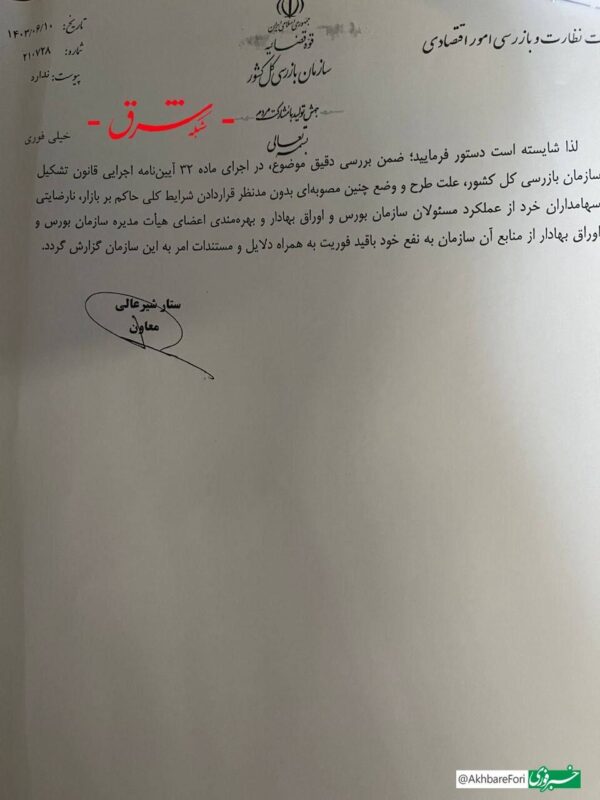 جمهوری اسلامی ایران
قوه قضائیه
سازمان بازرسی کل کشور
جهش تولید با مشارکت مردم
بسمه تعالی
ت نظارت و بازرسی امور اقتصادی
تاریخ: ۱۴۰۳/۰۶/۱۰
شماره: ۲۱۰۷۲۸
پیوست: ندارد
خیلی فوری
- شبکه شرق -
لذا شایسته است دستور فرمایید؛ ضمن بررسی دقیق موضوع، در اجرای ماده ۳۲ آیین‌نامه اجرایی قانون تشکیل
سازمان بازرسی کل کشور، علت طرح و وضع چنین مصوبه‌ای بدون مدنظر قراردادن شرایط کلی حاکم بر بازار، نارضایتی
سهامداران خرد از عملکرد مسئولان سازمان بورس و اوراق بهادار و بهره‌مندی اعضای هیأت مدیره سازمان بورس و
اوراق بهادار از منابع آن سازمان به نفع خود باقید فوریت به همراه دلایل و مستندات امر به این سازمان گزارش گردد.
ستار شیرعالی
معاون
@AkhbareFori
خبرفوری